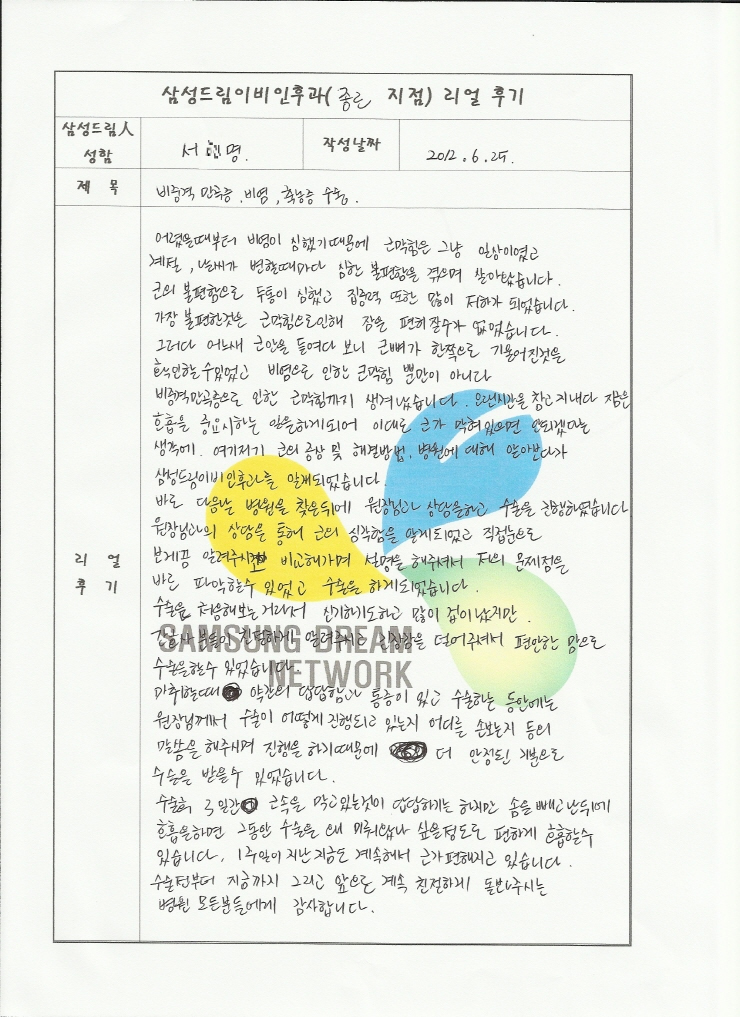 삼성드림이비인후과(종로 지점) 리얼 후기
삼성드림人 성함
서 명.
작성날짜
2012. 6. 25.
제 목
비중격 만곡증, 비염, 축농증 수술.
어렸을때부터 비염이 심했기때문에 코막힘은 그냥 일상이였고
계절, 날씨가 변할때마다 심한 불편함을 겪으며 살아왔습니다.
코의 불편함으로 두통이 심했고 집중력 또한 많이 저하가 되었습니다.
가장 불편한것은 코막힘으로인해 잠을 편히잘수가 없었습니다.
그러다 어느새 코안을 들여다 보니 코뼈가 한쪽으로 기울어진것을
확인할수있었고 비염으로 인한 코막힘 뿐만이 아니라
비중격만곡증으로 인한 코막힘까지 생겨났습니다. 오랜시간을 참고지내다 지금은
호흡을 중요시하는 일을하게되어 이대로 코가 막혀있으면 안되겠다는
생각에. 여기저기 코의 증상 및 해결방법, 병원에 대해 알아보다가
삼성드림이비인후과를 알게되었습니다.
바로 다음날 병원을 찾은뒤에 원장님과 상담을하고 수술을 진행하였습니다
원장님과의 상담을 통해 코의 심각함을 알게되었고 직접눈으로
보게끔 알려주시고 비교해가며 설명을 해주셔서 저의 문제점을
바로 파악할수 있었고 수술을 하게되었습니다.
리 얼
후 기
수술을 처음해보는거라서 신기하기도하고 많이 겁이났지만.
간호사분들이 친절하게 알려주시고 긴장감을 덜어주셔서 편안한 맘으로
수술을할수 있었습니다.
SAMSUNG DREAM
NETWORK
마취할때 약간의 답답함과 통증이 있고 수술하는 동안에는
원장님께서 수술이 어떻게 진행되고 있는지 어디를 손보는지 등의
말씀을 해주시며 진행을 하기때문에 더 안정된 기분으로
수술을 받을수 있었습니다.
수술후 3일간 콧속을 막고있는것이 답답하기는 하지만 솜을 빼고난뒤에
호흡을하면 그동안 수술을 왜 미뤄왔나 싶을정도로 편하게 호흡할수
있습니다. 1주일이 지난지금도 계속해서 코가편해지고 있습니다.
수술전부터 지금까지 그리고 앞으로 계속 친절하게 돌봐주시는
병원 모든분들에게 감사합니다.